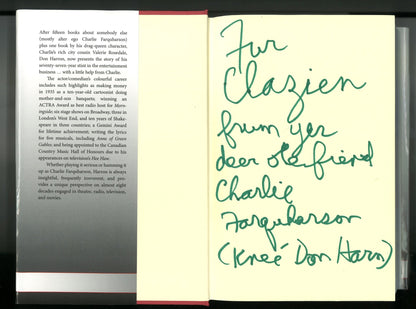 After fifteen books about somebody else
(mostly alter ego Charlie Farquharson)
plus one book by his drag-queen character,
Charlie's rich city cousin Valerie Rosedale,
Don Harron, now presents the story of his
seventy-seven-year stint in the entertainment
business ... with a little help from Charlie.
The actor/comedian's colourful career
includes such highlights as making money
in 1935 as a ten-year-old cartoonist doing
mother-and-son banquets; winning an
ACTRA Award as best radio host for Morn-
ingside; six stage shows on Broadway, three in
London's West End, and ten years of Shake-
speare in three countries; a Gemini Award
for lifetime achievement; writing the lyrics
for five musicals, including Anne of Green
Gables; and being appointed to the Canadian
Country Music Hall of Honours due to his
appearances on television's Hee Haw.
Whether playing it serious or hamming it
up as Charlie Farquharson, Harron is always
insightful, frequently irreverent, and pro-
vides a unique perspective on almost eight
decades engaged in theatre, radio, television,
and movies.
Fur
Clazien
frum yer
deer ole friend
Charlie
Farquharson
(Kneé Don Harn)